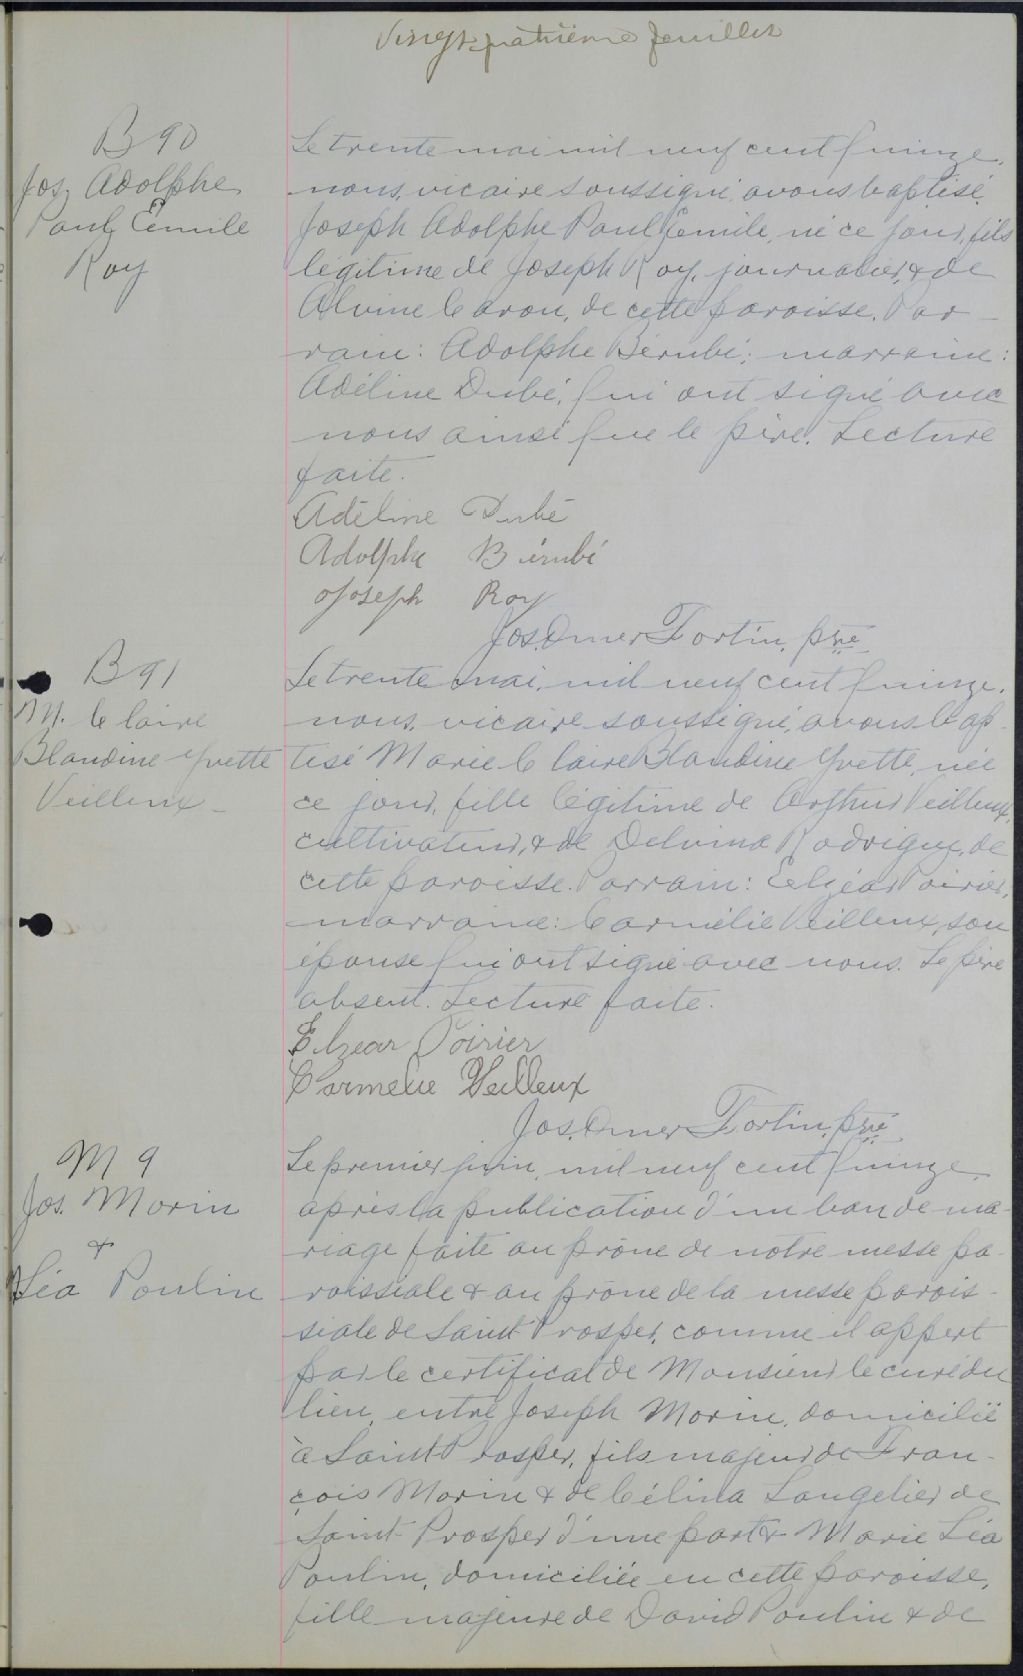 Vingt-quatrième feuillet
B 90
Jos. Adolphe
Paul Émile
Roy
Le trente mai mil neuf cent quinze,
nous, vicaire soussigné, avons baptisé
Joseph Adolphe Paul Émile, né ce jour, fils
légitime de Joseph Roy, journalier, & de
Alvine Caron, de cette paroisse. Par-
rain: Adolphe Bérubé; marraine:
Adéline Dubé, qui ont signé avec
nous ainsi que le père. Lecture
faite.
Adéline Dubé
Adolphe Bérubé
Joseph Roy
Jos. Omer Fortin, ptre
B 91
M. Claire
Blandine Yvette
Veilleux
Le trente mai, mil neuf cent quinze,
nous, vicaire soussigné, avons bap-
tisé Marie Claire Blandine Yvette, née
ce jour, fille légitime de Arthur Veilleux,
cultivateur, & de Delvina Rodrigue, de
cette paroisse. Parrain: Elzéar Poirier,
marraine: Carmélie Veilleux, son
épouse qui ont signé avec nous. Le père
absent. Lecture faite.
Elzear Poirier
Carmelie Veilleux
Jos. Omer Fortin, ptre
M 9
Jos. Morin
&
Léa Poulin
Le premier juin, mil neuf cent quinze,
après la publication d'un ban de ma-
riage faite au prône de notre messe pa-
roissiale & au prône de la messe parois-
siale de Saint Prosper, comme il appert
par le certificat de Monsieur le curé du
lieu, entre Joseph Morin, domicilié
à Saint Prosper, fils majeur de Fran-
çois Morin & de Célina Langelier de
Saint-Prosper d'une part & Marie Léa
Poulin, domiciliée en cette paroisse,
fille majeure de David Poulin & de